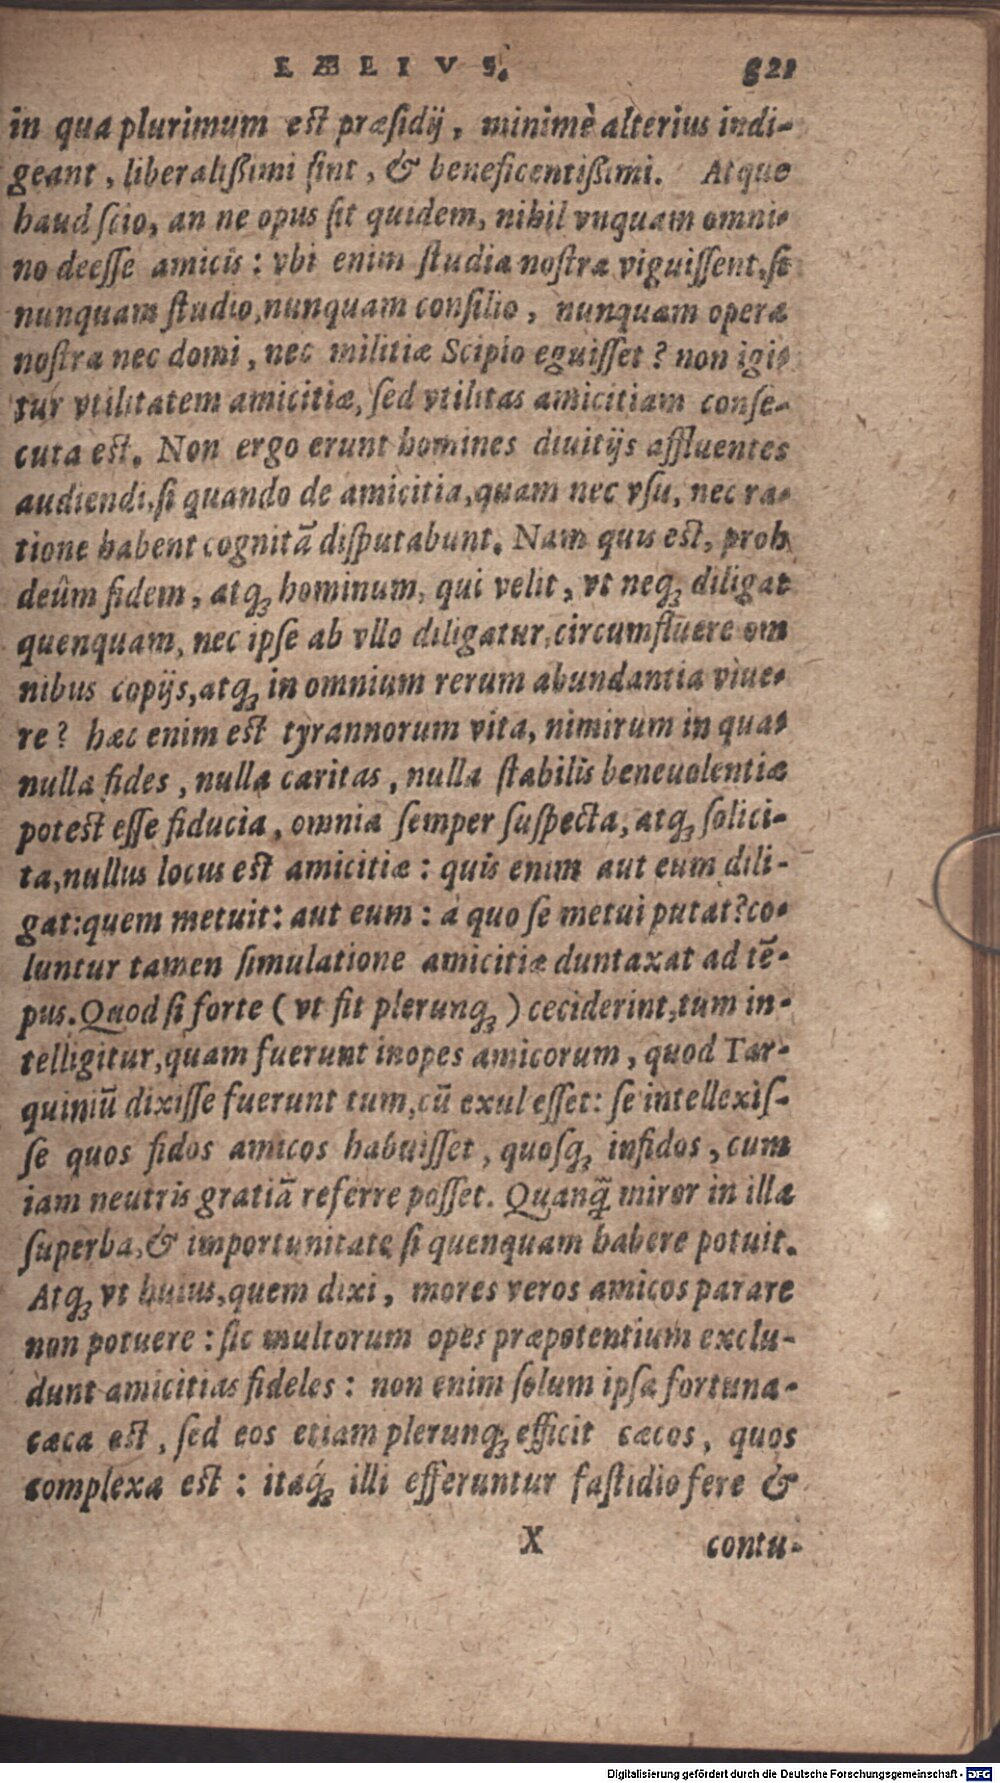 LÆLIVS. 321
in qua plurimum est præsidij, minimè alterius indi-
geant, liberalißimi sint, & beneficentißimi. Atque
haud scio, an ne opus sit quidem, nihil vnquam omni-
no deesse amicis: vbi enim studia nostra viguissent, si
nunquam studio, nunquam consilio, nunquam opera
nostra nec domi, nec militiæ Scipio eguisset? non igi-
tur vtilitatem amicitiæ, sed vtilitas amicitiam conse-
cuta est. Non ergo erunt homines diuitijs affluentes
audiendi, si quando de amicitia, quam nec vsu, nec ra-
tione habent cognitā disputabunt. Nam quis est, proh
deûm fidem, atq; hominum, qui velit, vt neq; diligat
quenquam, nec ipse ab vllo diligatur, circumfluere om
nibus copijs, atq; in omnium rerum abundantia viue-
re? hæc enim est tyrannorum vita, nimirum in qua
nulla fides, nulla caritas, nulla stabilis beneuolentiæ
potest esse fiducia, omnia semper suspecta, atq; solici-
ta, nullus locus est amicitiæ: quis enim aut eum dili-
gat: quem metuit: aut eum: à quo se metui putat? co-
luntur tamen simulatione amicitiæ duntaxat ad tē-
pus. Quod si forte (vt fit plerunq;) ceciderint, tum in-
telligitur, quam fuerunt inopes amicorum, quod Tar-
quiniū dixisse fuerunt tum, cū exul esset: se intellexis-
se quos fidos amicos habuisset, quosq; infidos, cum
iam neutris gratiā referre posset. Quanq̃ miror in illa
superba, & importunitate si quenquam habere potuit.
Atq; vt huius, quem dixi, mores veros amicos parare
non potuere: sic multorum opes præpotentium exclu-
dunt amicitias fideles: non enim solum ipsa fortuna
cæca est, sed eos etiam plerunq; efficit cæcos, quos
complexa est: itaq́; illi efferuntur fastidio fere &
X contu-
Digitalisierung gefördert durch die Deutsche Forschungsgemeinschaft - DFG